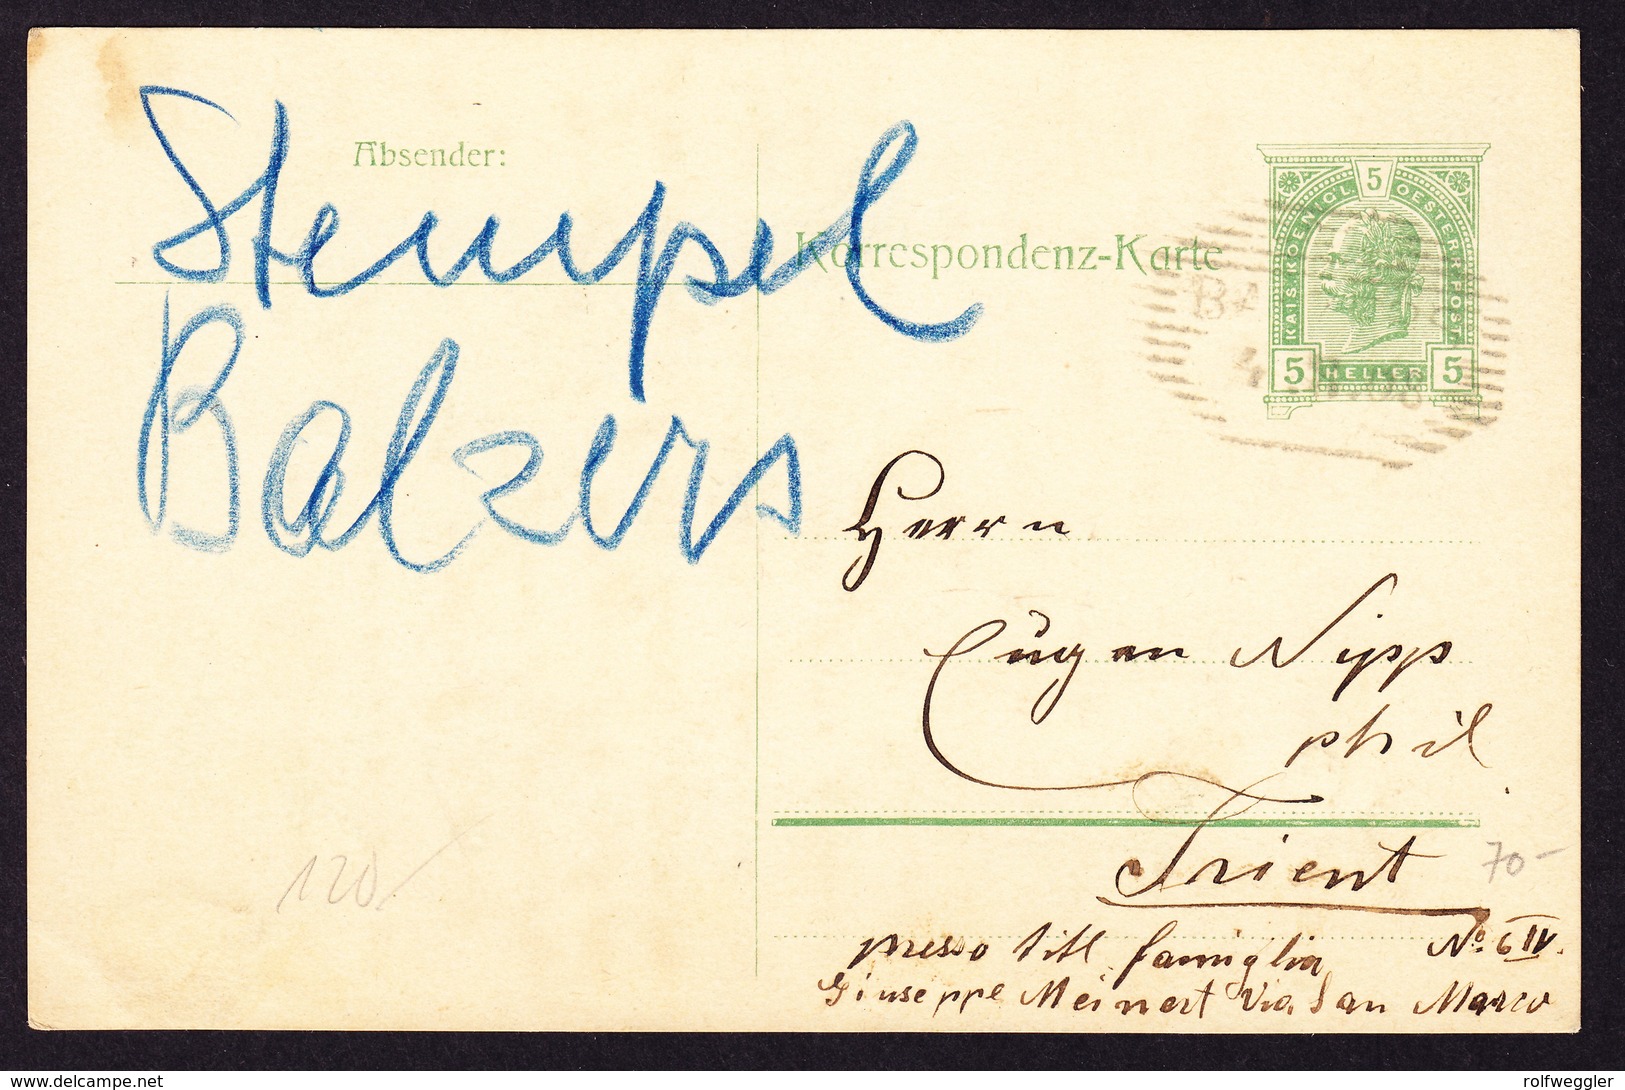 Stempel
Balzers
Absender:
Korrespondenz-Karte
5
KAIS. KOENIGL. OESTERR. POST.
5 HELLER 5
Herrn
Eugen Nipp
phil
Trient
70-
120
presso titl famiglia No. 6 IV.
Giuseppe Meinert Via San Marco
delcampe.net
rolfweggler